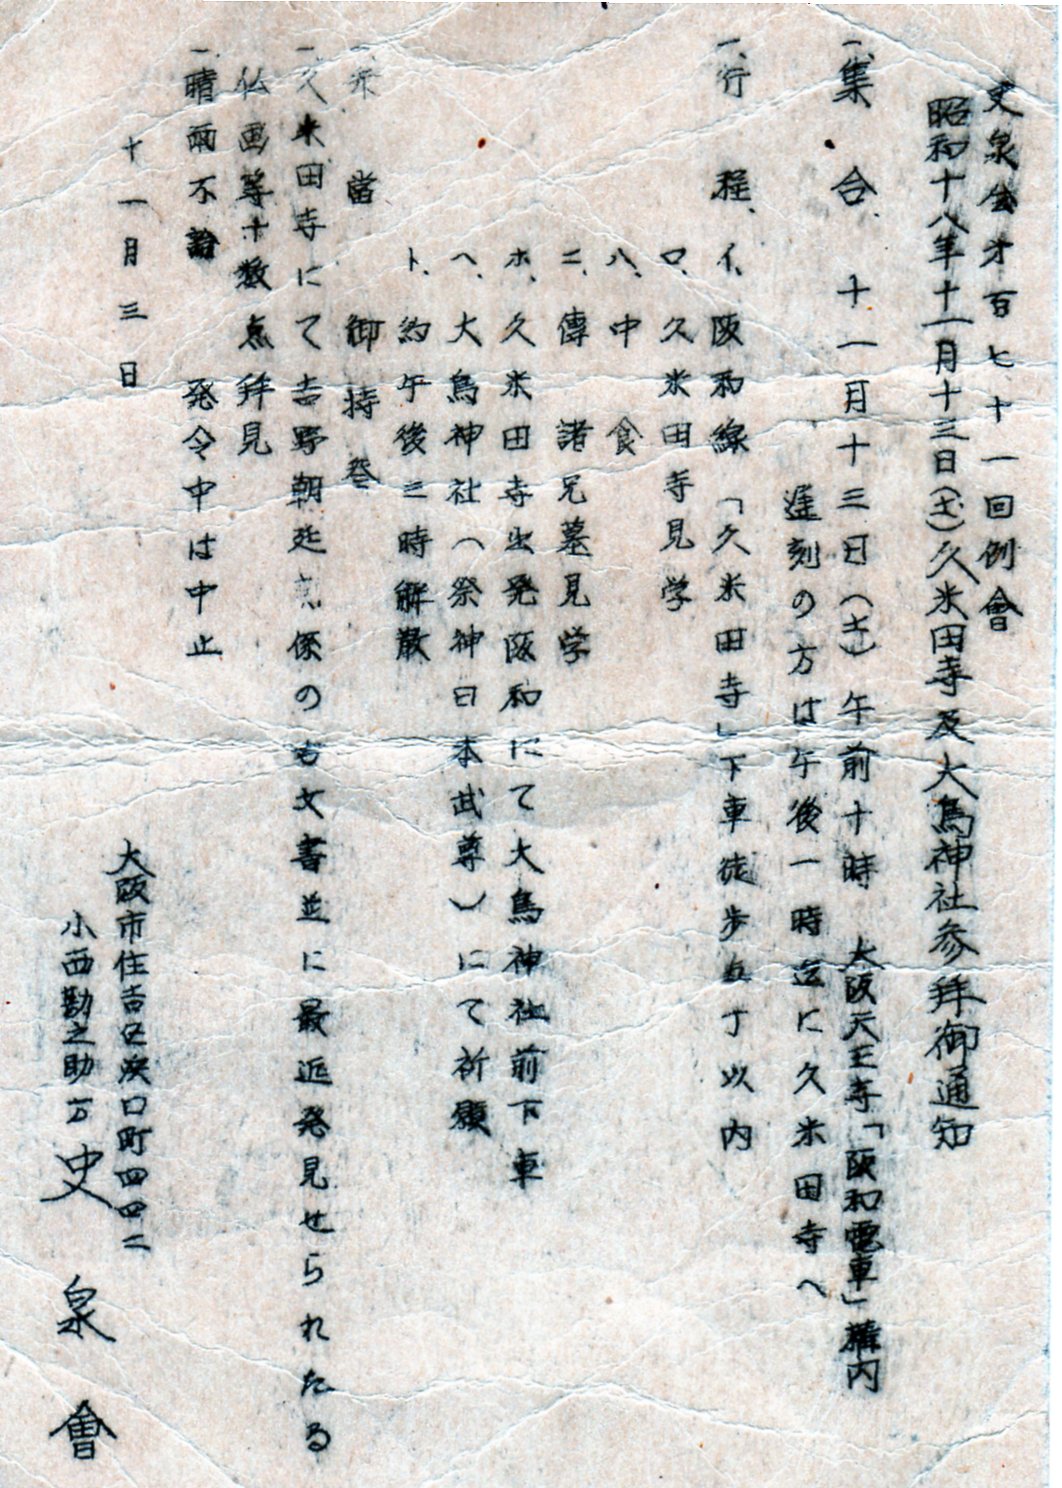 史泉会才百七十一回例會
昭和十八年十一月十三日(土)久米田寺及大鳥神社参拝御通知
一、集合 十一月十三日(土)午前十時 大阪天王寺「阪和電車」構内
遅刻の方は午後一時迄に久米田寺へ
一、行程、イ、阪和線「久米田寺」下車徒歩五丁以内
ロ、久米田寺見学
ハ、中食
ニ、傳 諸兄墓見学
ホ、久米田寺出発阪和にて大鳥神社前下車
ヘ、大鳥神社(祭神日本武尊)にて祈願
ト、約午後三時解散
一、弁當 御持参
一、久米田寺にて吉野朝延 係のも文書並に最近発見せられたる
仏画等十数点拝見
一、晴雨不論 発令中は中止
十一月三日
大阪市住吉区浜口町四四二
小西勘之助方
史泉會